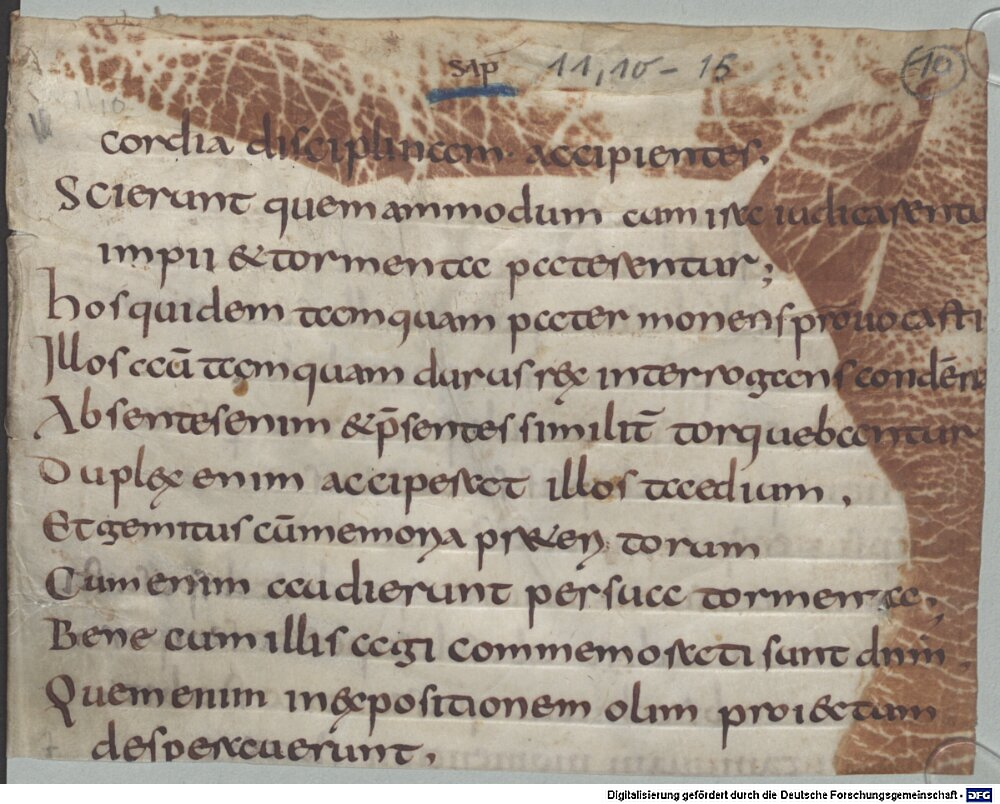 sap 11,10-15
10
cordia disciplinam accipientes.
Scierunt quem ammodum cum ira iudicarentu
impii & tormenta paterentur;
hos quidem tamquam pater monens provocasti
Illos aū tamquam durus rex interrogans condēn
Absentes enim & p̄sentes similit̄ torquebantur
Duplex enim acciperat illos taedium,
Et gemitus cū memoria praeteritorum
Cum enim audierunt per sua tormenta;
Bene cum illis agi commemorati sunt dnm,
Quem enim in expositionem olim proiectum
desperauerunt.
Digitalisierung gefördert durch die Deutsche Forschungsgemeinschaft - DFG